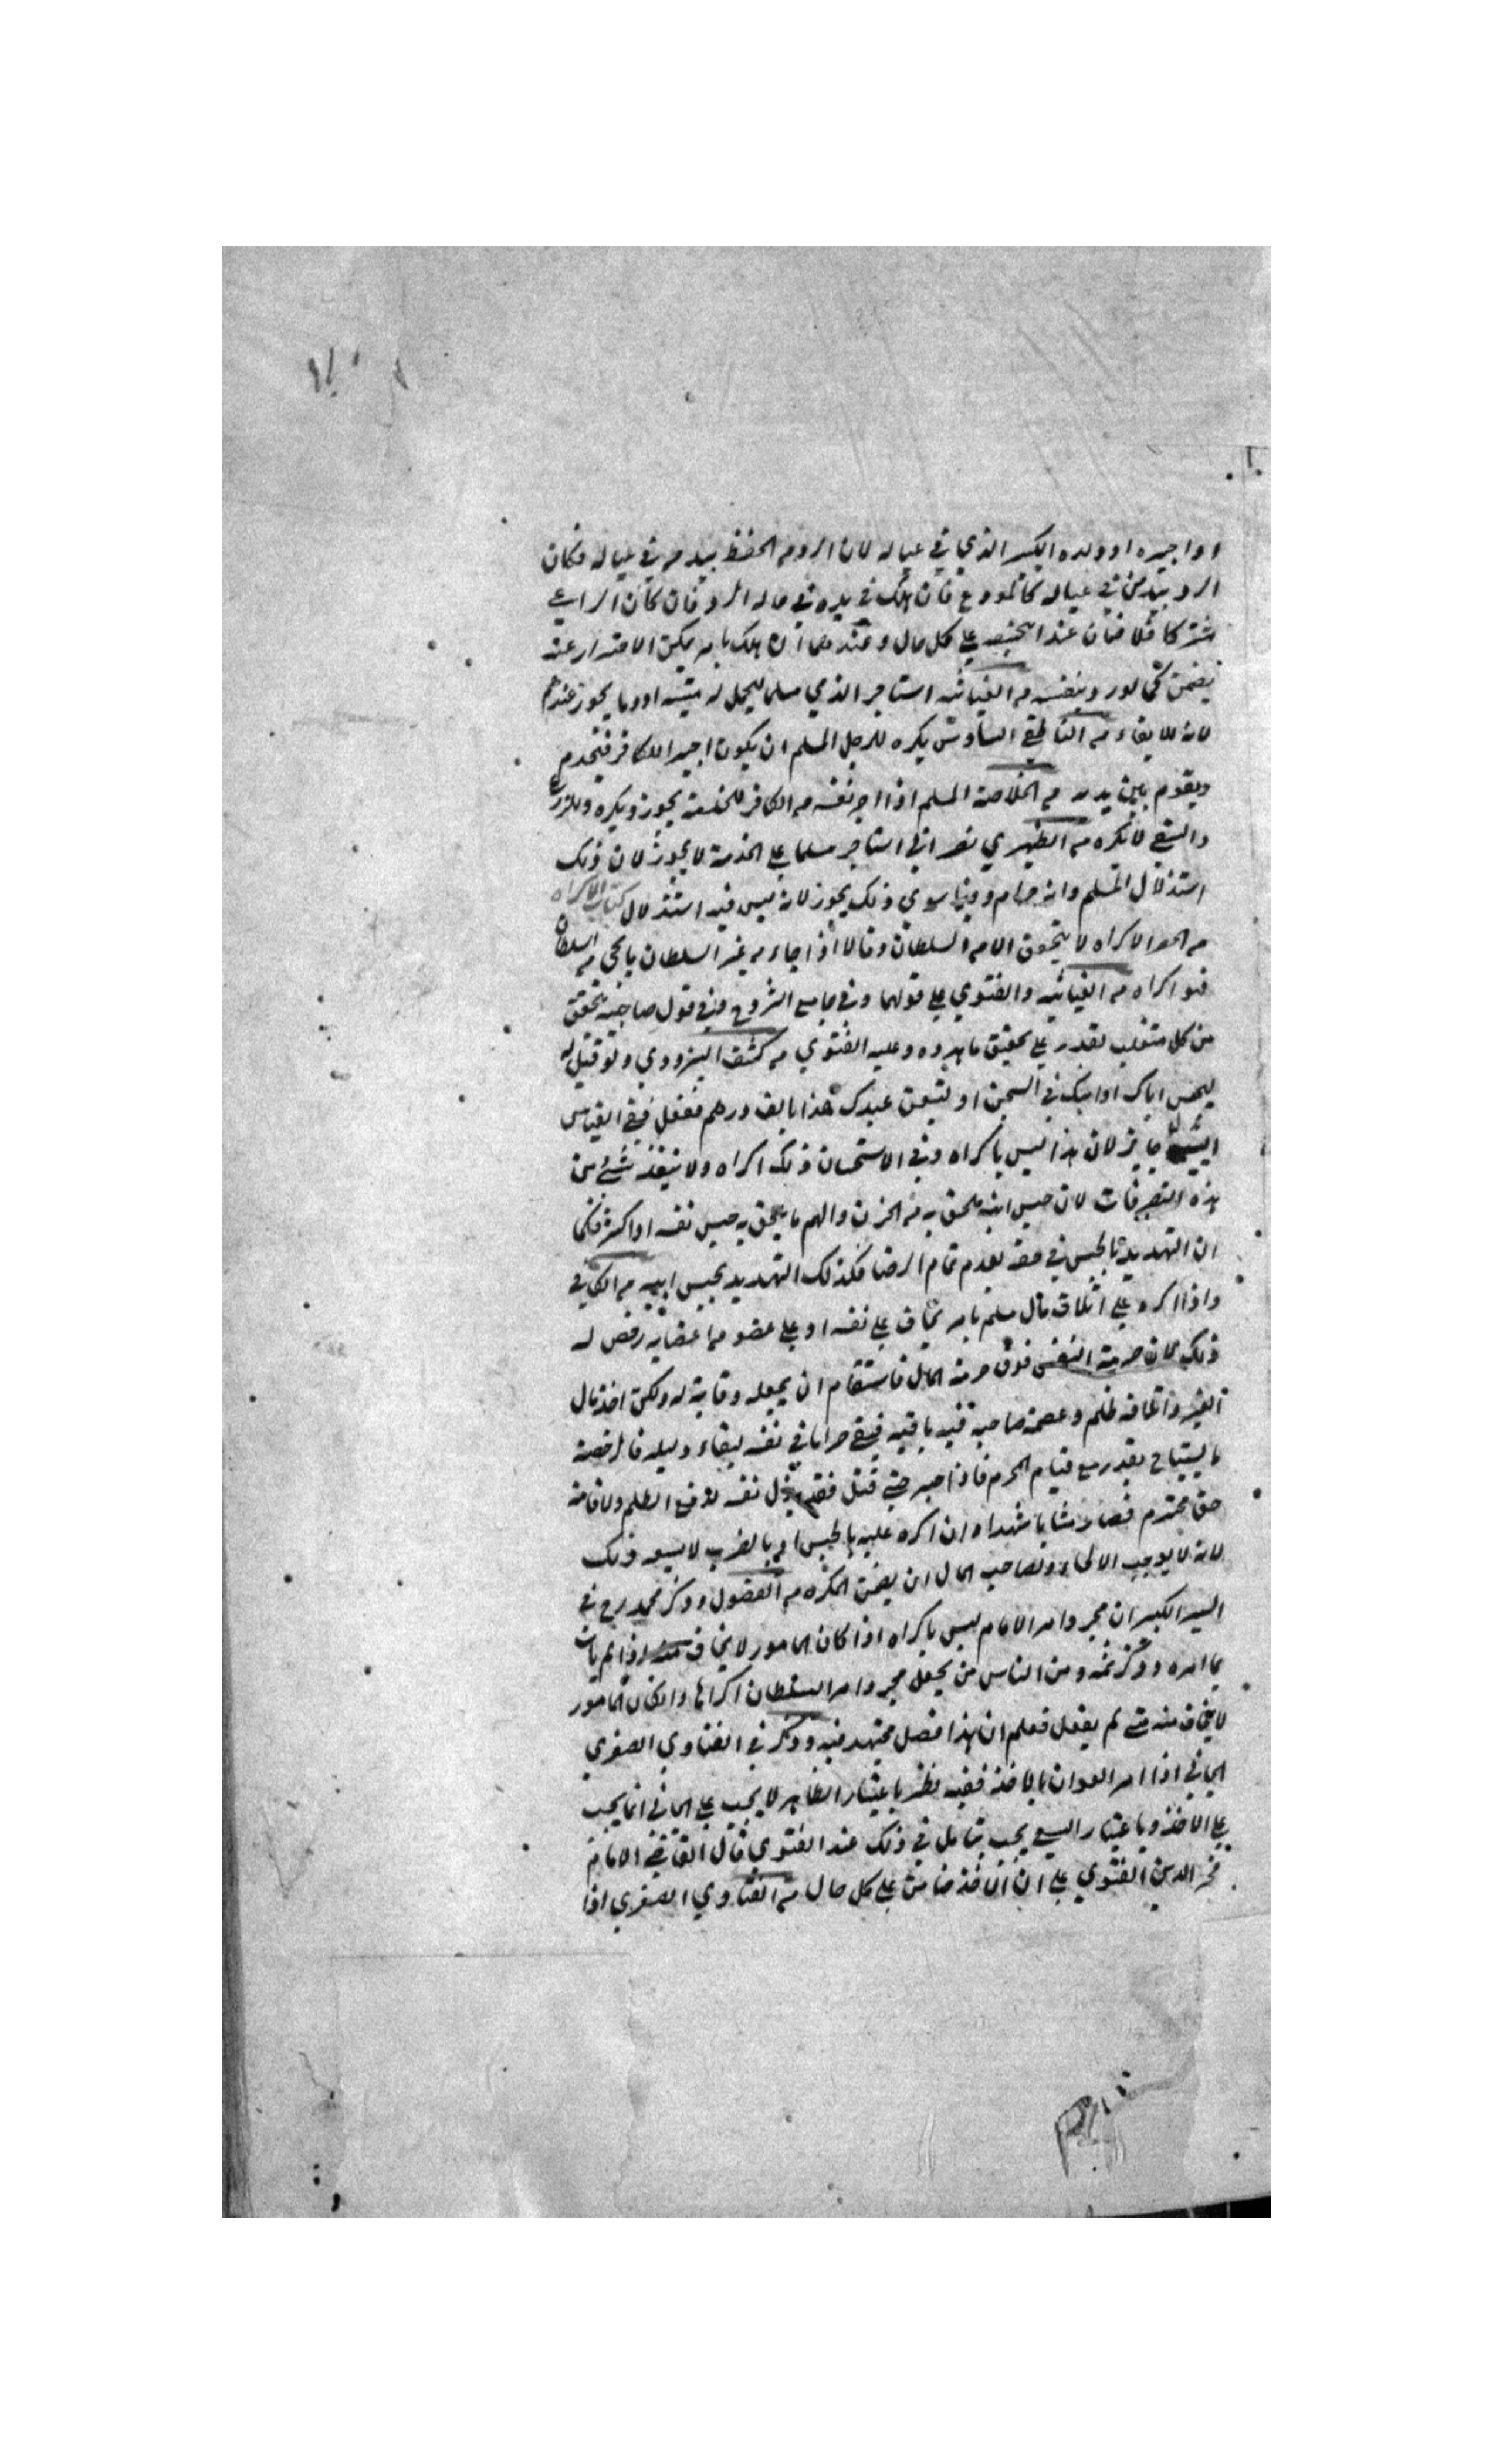 او اجيره او ولده الكبير الذي في عياله لان الرد من الحفظ بيد من في عياله فكان
الرد بيد من في عياله كالمودع فان هلك في يده في حاله الرد فان كان الراعي
مشتركا فلا ضمان عند ابيحنيفه علي كل حال وعندهما ان هلك بامر يمكن الاحتراز عنه
يضمن من الغياثيه استاجر الذمي مسلما ليحمل له ميته او دما يجوز عندهم
لانه للايفاء من الناطفي يكره للرجل المسلم ان يكون اجيرا للكافر فيخدم
ويقوم بين يديه من الخلاصة المسلم اذا اجر نفسه من الكافر للخدمة يجوز ويكره وللزرع
والسقي لا يكره من الظهيري نصراني استاجر مسلما علي الخدمة لا يجوز لان ذلك
استذلال المسلم وانه حرام وفيما سوي ذلك يجوز لانه ليس فيه استذلال كتاب الاكراه
من الاكراه لا يتحقق الا من السلطان وقالا اذا جاء من غير السلطان ما يجي من السلطان
فهو اكراه من الغياثيه والفتوي علي قولهما وفي جامع الشروح وفي قول صاحبيه يتحقق
من كل متغلب يقدر علي تحقيق ما هدده وعليه الفتوي من كشف البزدوي ولو قيل له
ليحبس اباك او ابنك في السجن او لتبيعن عبدك هذا بالف درهم ففعل ففي القياس
البيع جايز لان هذا ليس باكراه وفي الاستحسان ذلك اكراه ولا ينفذ شئ من
هذه التصرفات لان حبس ابيه يلحق به من الحزن والهم ما يلحق به حبس نفسه او اكثر فكما
ان التهديد بالحبس في حقه يعدم تمام الرضا فكذلك التهديد بحبس ابيه من الكافي
واذا اكره علي اتلاف مال مسلم بامر يخاف علي نفسه او علي عضو من اعضايه رخص له
ذلك لان حرمة النفس فوق حرمة المال فاستقام ان يجعله وقاية له ولكن اخذ مال
الغير واتلافه ظلم وعصمة صاحبه فيه باقيه فبقي حراما في نفسه لبقاء دليله فالرخصة
ما يستباح بعذر مع قيام المحرم فاذا صبر حتي قتل فقد بذل نفسه لدفع الظلم ولاقامة
حق محترم فصار مثابا شهيدا وان اكره عليه بالحبس او بالضرب لا يسعه ذلك
لانه لا يوجب الالجاء ولصاحب المال ان يضمن المكره من الفصول وذكر محمد رح في
السير الكبير ان مجرد امر الامام ليس باكراه اذا كان المامور لا يخاف منه اذا لم يات
بما امره وذكر ثمه ومن الناس من يجعل مجرد امر السلطان اكراها وان كان المامور
لا يخاف منه متي لم يفعل فعلم ان هذا فصل مجتهد فيه وذكر في الفتاوي الصغري
الجاني اذا امر العوان بالاخذ ففيه نظر باعتبار الظاهر لا يجب علي الجاني انما يجب
علي الاخذ وباعتبار السعي يجب يتامل في ذلك عند الفتوي قال القاضي الامام
فخر الدين الفتوي علي ان الاخذ ضامن علي كل حال من الفتاوي الصغري اذا